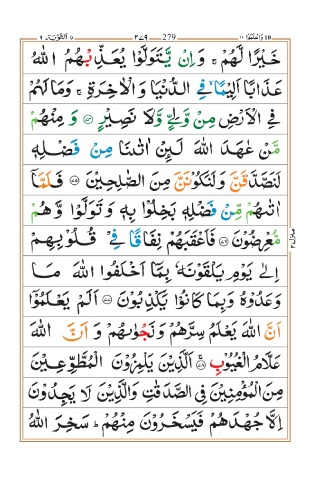 ١٠ وَاعْلَمُوْٓا 279 ٢٧٩ اَلتَّوْبَة ٩
خَيْرًا لَّهُمْ ۚ وَاِنْ يَّتَوَلَّوْا يُعَذِّبْهُمُ اللّٰهُ
عَذَابًا اَلِيْمًا فِي الدُّنْيَا وَالْاٰخِرَةِ ۚ وَمَا لَهُمْ
فِي الْاَرْضِ مِنْ وَّلِيٍّ وَّلَا نَصِيْرٍ ۝٧٤ وَمِنْهُمْ
مَّنْ عٰهَدَ اللّٰهَ لَئِنْ اٰتٰىنَا مِنْ فَضْلِهٖ
لَنَصَّدَّقَنَّ وَلَنَكُوْنَنَّ مِنَ الصّٰلِحِيْنَ ۝٧٥ فَلَمَّآ
اٰتٰىهُمْ مِّنْ فَضْلِهٖ بَخِلُوْا بِهٖ وَتَوَلَّوْا وَّهُمْ
مُّعْرِضُوْنَ ۝٧٦ فَاَعْقَبَهُمْ نِفَاقًا فِيْ قُلُوْبِهِمْ
اِلٰى يَوْمِ يَلْقَوْنَهٗ بِمَآ اَخْلَفُوا اللّٰهَ مَا
وَعَدُوْهُ وَبِمَا كَانُوْا يَكْذِبُوْنَ ۝٧٧ اَلَمْ يَعْلَمُوْٓا
اَنَّ اللّٰهَ يَعْلَمُ سِرَّهُمْ وَنَجْوٰىهُمْ وَاَنَّ اللّٰهَ
عَلَّامُ الْغُيُوْبِ ۝٧٨ اَلَّذِيْنَ يَلْمِزُوْنَ الْمُطَّوِّعِيْنَ
مِنَ الْمُؤْمِنِيْنَ فِي الصَّدَقٰتِ وَالَّذِيْنَ لَا يَجِدُوْنَ
اِلَّا جُهْدَهُمْ فَيَسْخَرُوْنَ مِنْهُمْ ۗ سَخِرَ اللّٰهُ
منزل ٢